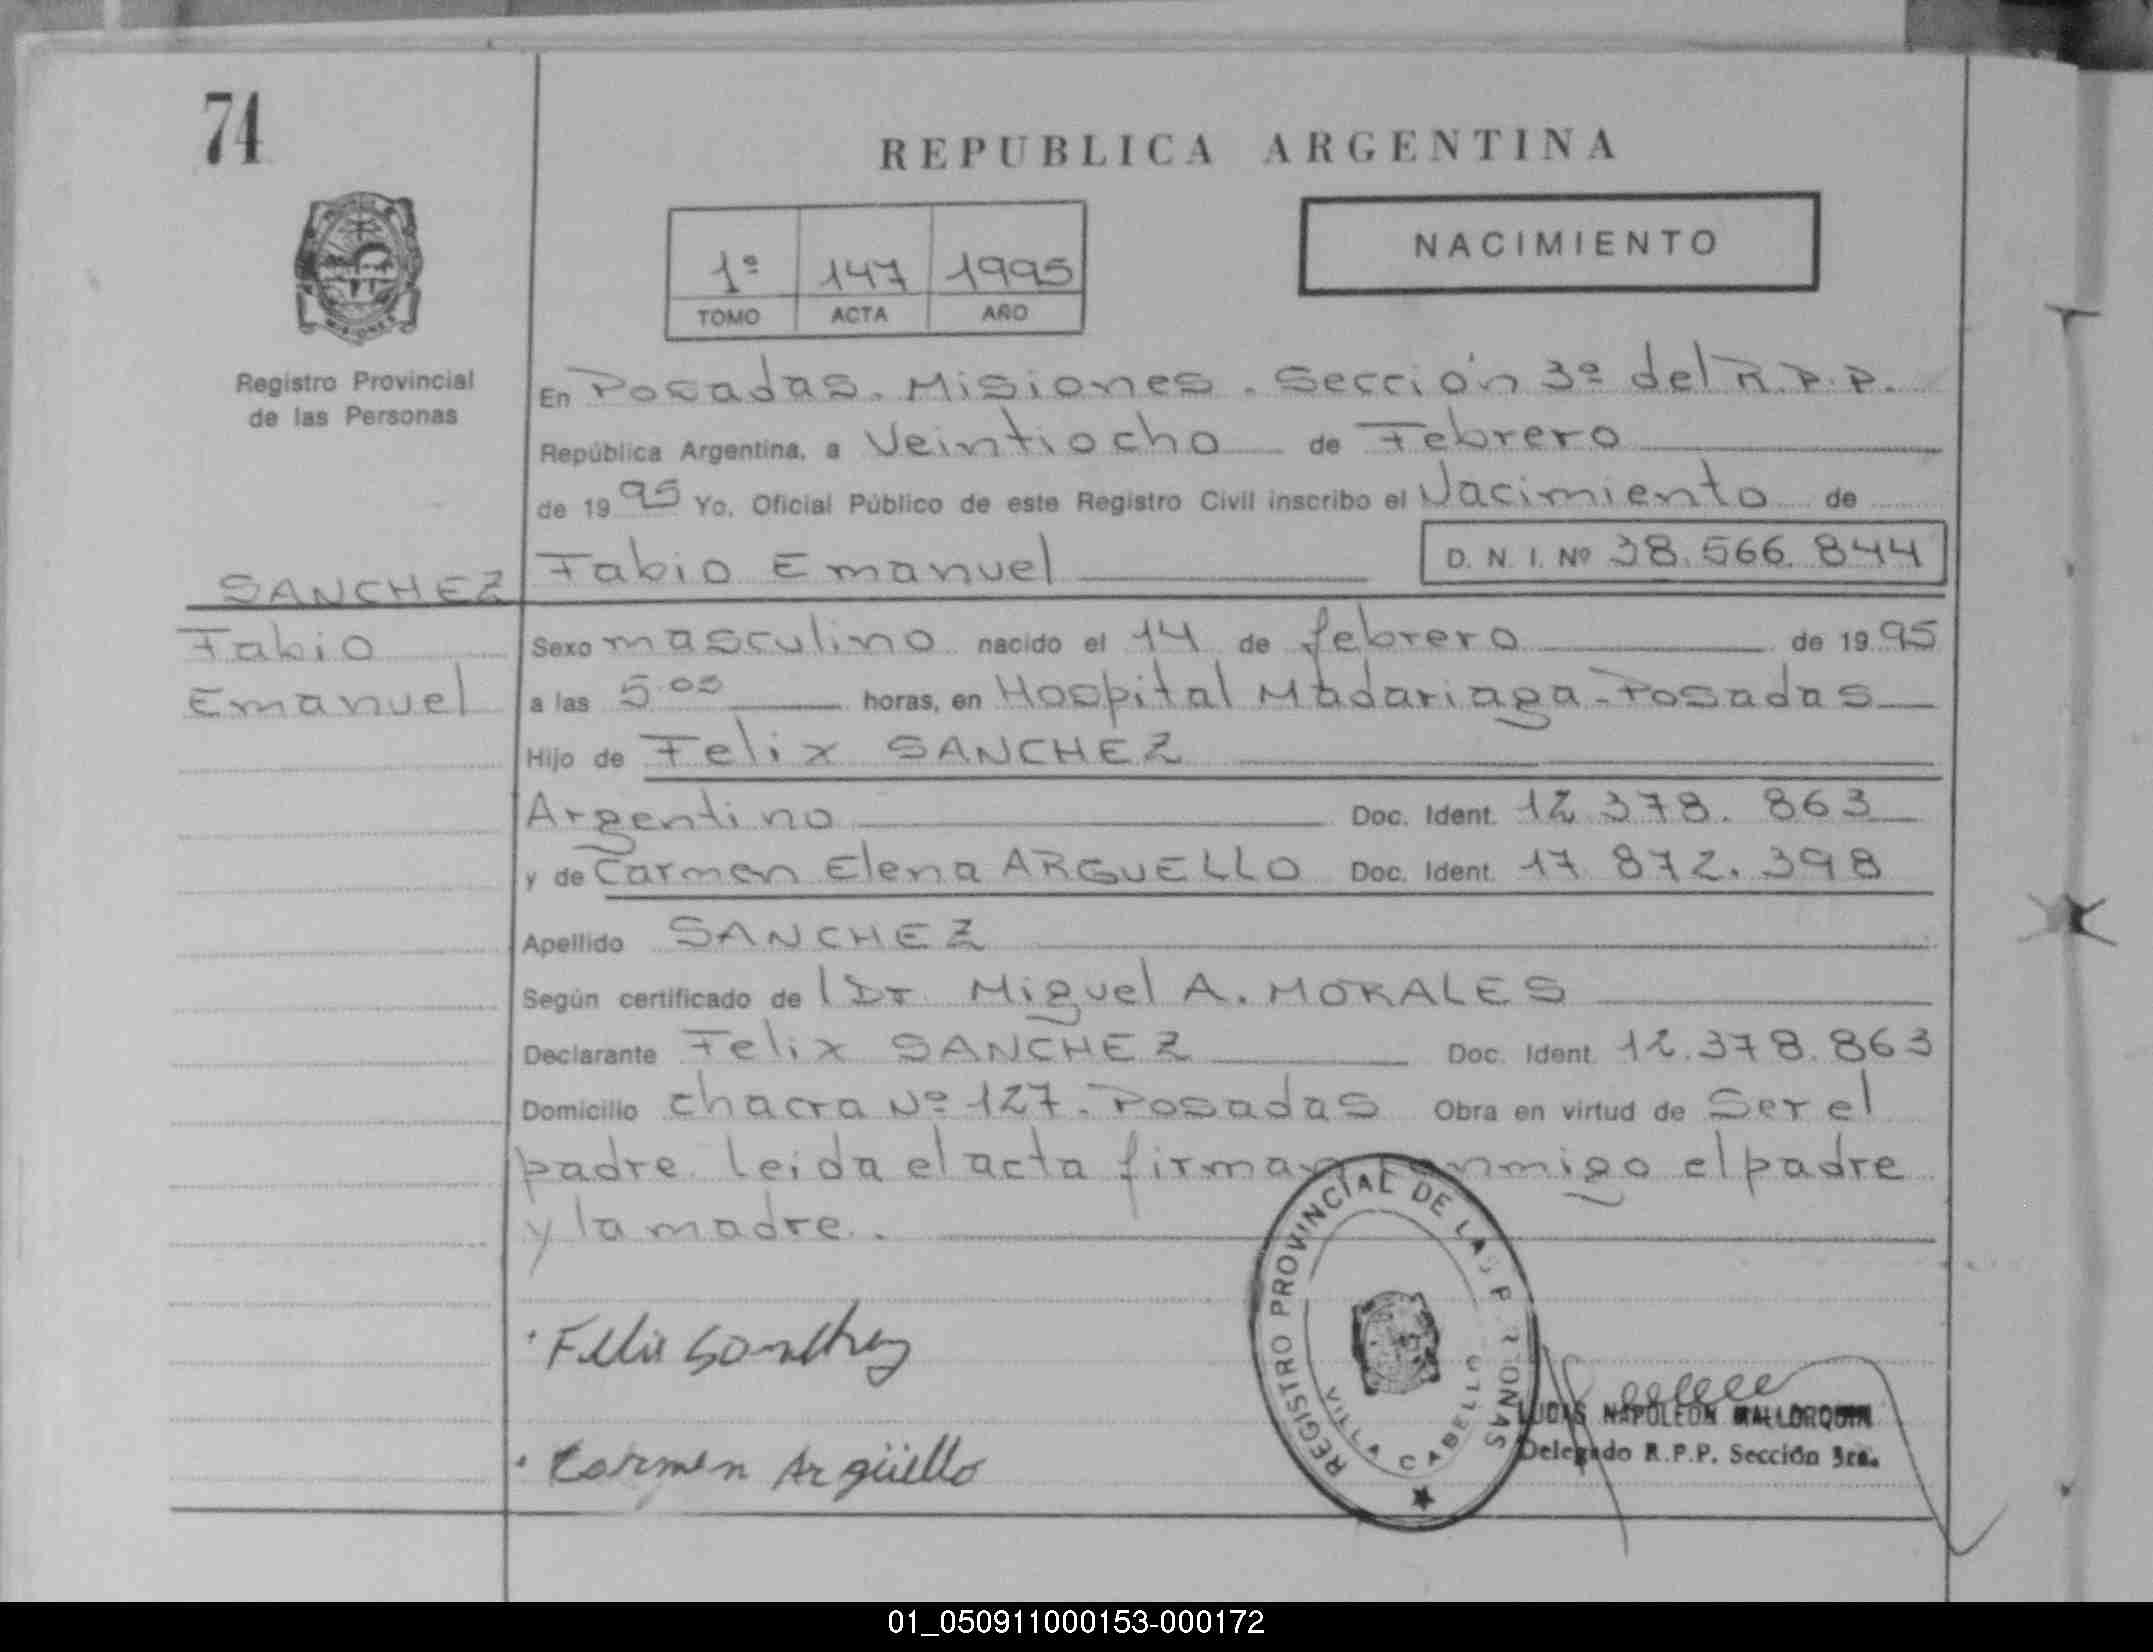 74
REPUBLICA ARGENTINA
1º 147 1995
TOMO ACTA AÑO
NACIMIENTO
MISIONES
Registro Provincial
de las Personas
En Posadas. Misiones. Sección 3º del R.P.P.
República Argentina, a Veintiocho de Febrero
de 1995 Yo, Oficial Público de este Registro Civil inscribo el Nacimiento de
SANCHEZ Fabio Emanuel D. N. I. Nº 38.566.844
Fabio
Emanuel
Sexo masculino nacido el 14 de febrero de 1995
a las 5:00 horas, en Hospital Madariaga-Posadas
Hijo de Felix SANCHEZ
Argentino Doc. Ident. 12.378.863
y de Carmen Elena ARGUELLO Doc. Ident. 17.872.398
Apellido SANCHEZ
Según certificado de l Dr. Miguel A. MORALES
Declarante Felix SANCHEZ Doc. Ident. 12.378.863
Domicilio chacra Nº 127. Posadas Obra en virtud de Ser el
padre. Leida el acta firman conmigo el padre
y la madre.
REGISTRO PROVINCIAL DE LAS PERSONAS
VILLA CABELLO
Felix Sanchez
Carmen Argüello
LUCAS NAPOLEON MALLORQUIN
Delegado R.P.P. Sección 3ra.
01_050911000153-000172